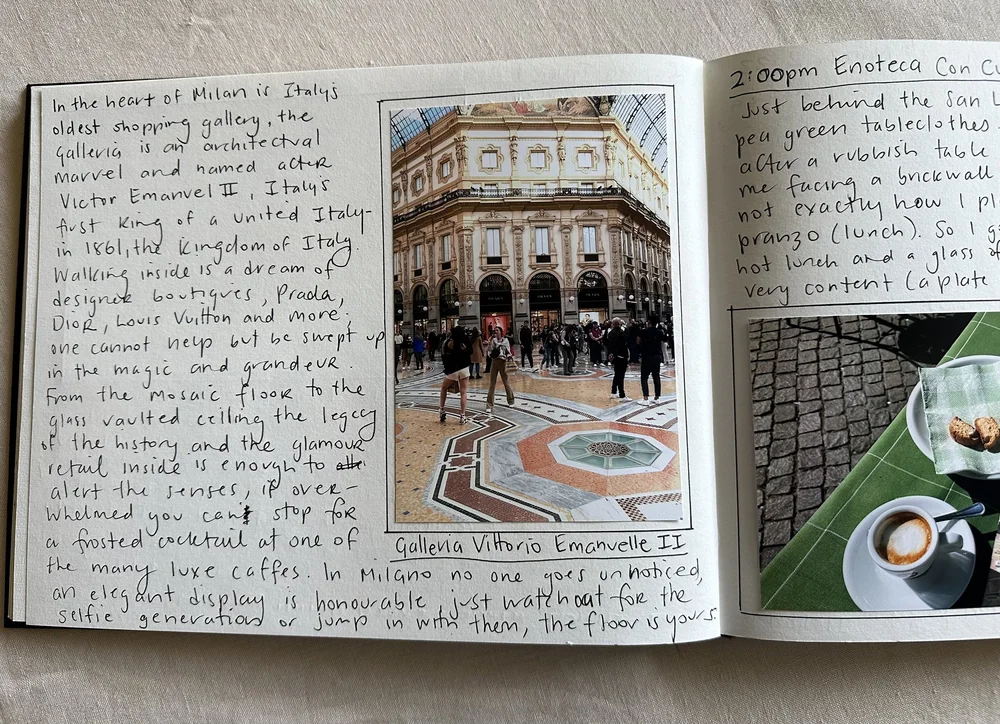 In the heart of Milan is Italy's
oldest shopping gallery, the
Galleria is an architectual
marvel and named after
Victor Emanuel II, Italy's
first king of a united Italy-
in 1861, the kingdom of Italy.
Walking inside is a dream of
designer boutiques, Prada,
Dior, Louis Vuitton and more.
one cannot help but be swept up
in the magic and grandeur.
From the mosaic floor to the
glass vaulted ceiling the legacy
of the history and the glamour
retail inside is enough to
alert the senses, if over-
whelmed you can stop for
a frosted cocktail at one of
the many luxe caffes. In Milano no one goes unnoticed,
an elegant display is honourable, just watch out for the
selfie generation or jump in with them, the floor is yours.
Galleria Vittorio Emanuelle II
2:00pm Enoteca Con
Just behind the San
pea green tableclothes
after a rubbish table
me facing a brickwall
not exactly how I
pranzo (lunch). So I
hot lunch and a glass of
very content (a plate